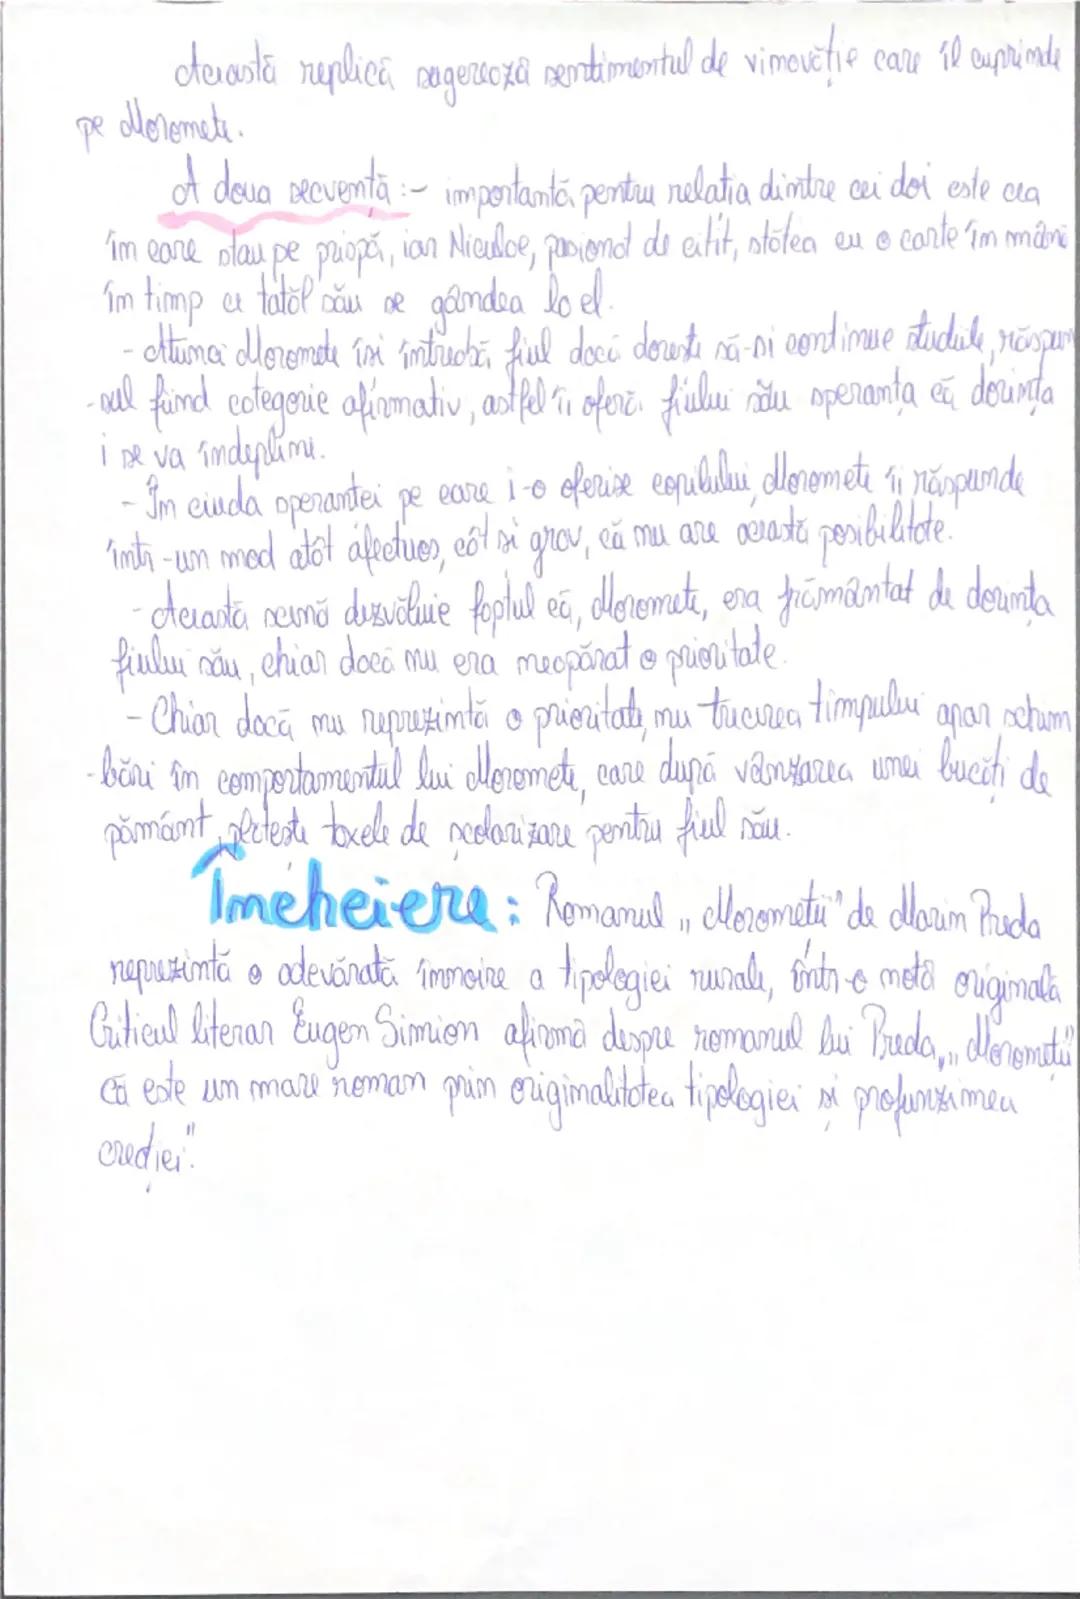 Această replică sugerează sentimentul de vinovăție care îl cuprinde
pe Moromete.
A doua secvență :- importantă, pentru relația dintre cei doi este cea
în care stau pe prispă, iar Niculae, pasionat de citit, stătea cu o carte în mână
în timp ce tatăl său se gândea la el.
- Atunci Moromete își întreabă fiul dacă dorește să-și continue studiile, răspun
-sul fiind categoric afirmativ, astfel îi oferă fiului său speranța că dorința
i se va îndeplini.
- În ciuda speranței pe care i-o oferise copilului, Moromete îi răspunde
într-un mod atât afectuos, cât și grav, că nu are această posibilitate.
- Această scenă dezvăluie faptul că, Moromete, era frământat de dorința
fiului său, chiar dacă nu era neapărat o prioritate.
- Chiar dacă nu reprezintă o prioritate, nu trecerea timpului apar schim
-bări în comportamentul lui Moromete, care după vânzarea unei bucăți de
pământ, plătește taxele de școlarizare pentru fiul său.
Încheiere: Romanul „Moromeții" de Marin Preda
reprezintă o adevărată înnoire a tipologiei rurale, într-o notă originală
Criticul literar Eugen Simion afirmă despre romanul lui Preda, „Moromeții"
că este un mare roman prin originalitatea tipologiei și profunzimea
creației".